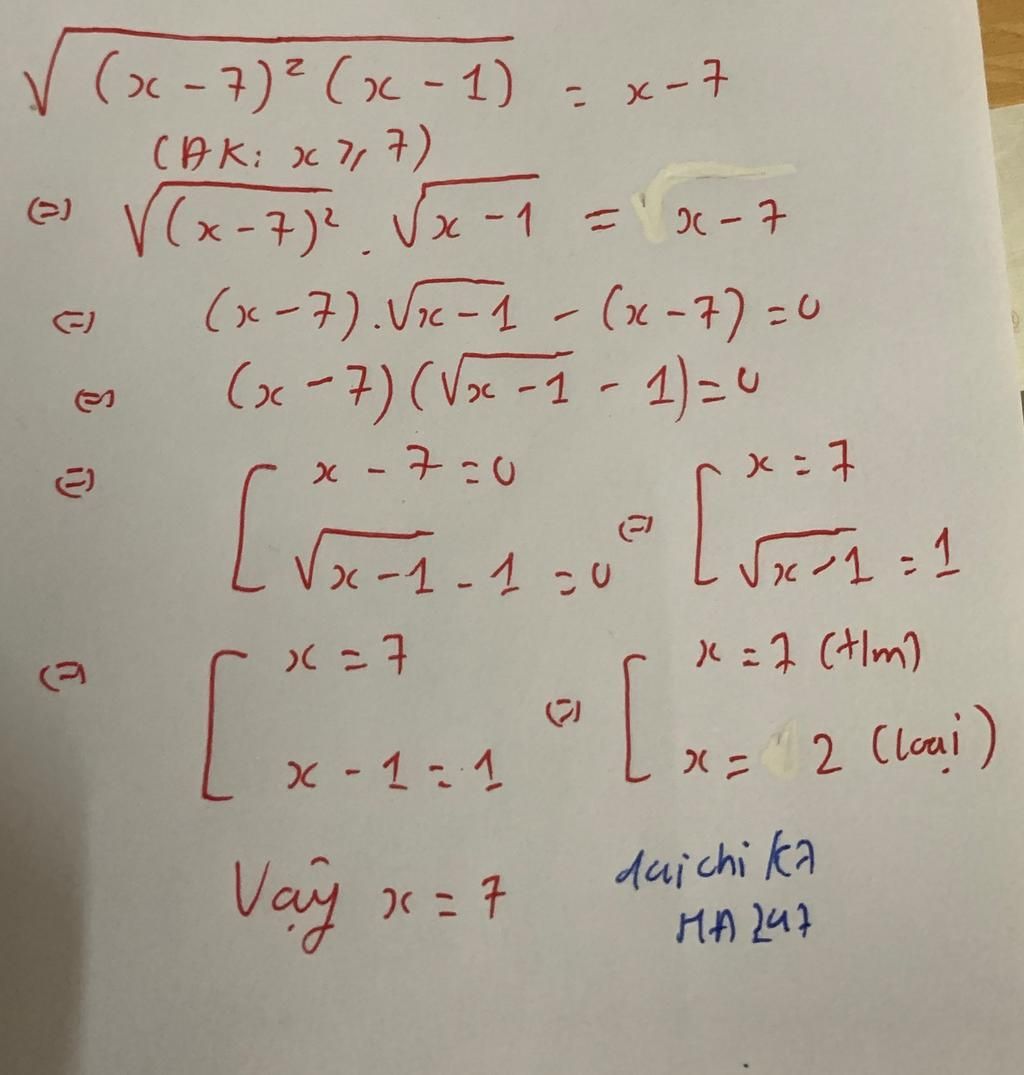 √((x-7)²(x-1)) = x-7
(ĐK: x ≥ 7)
⇔ √((x-7)²) . √(x-1) = x-7
⇔ (x-7).√(x-1) - (x-7) = 0
⇔ (x-7)(√(x-1) - 1) = 0
⇔ [ x-7=0 ⇔ [ x=7
√(x-1) - 1 = 0 √(x-1) = 1
⇔ [ x=7 ⇔ [ x=7 (t/m)
x-1=1 x= 2 (loại)
Vậy x=7
daichi k7
MA247